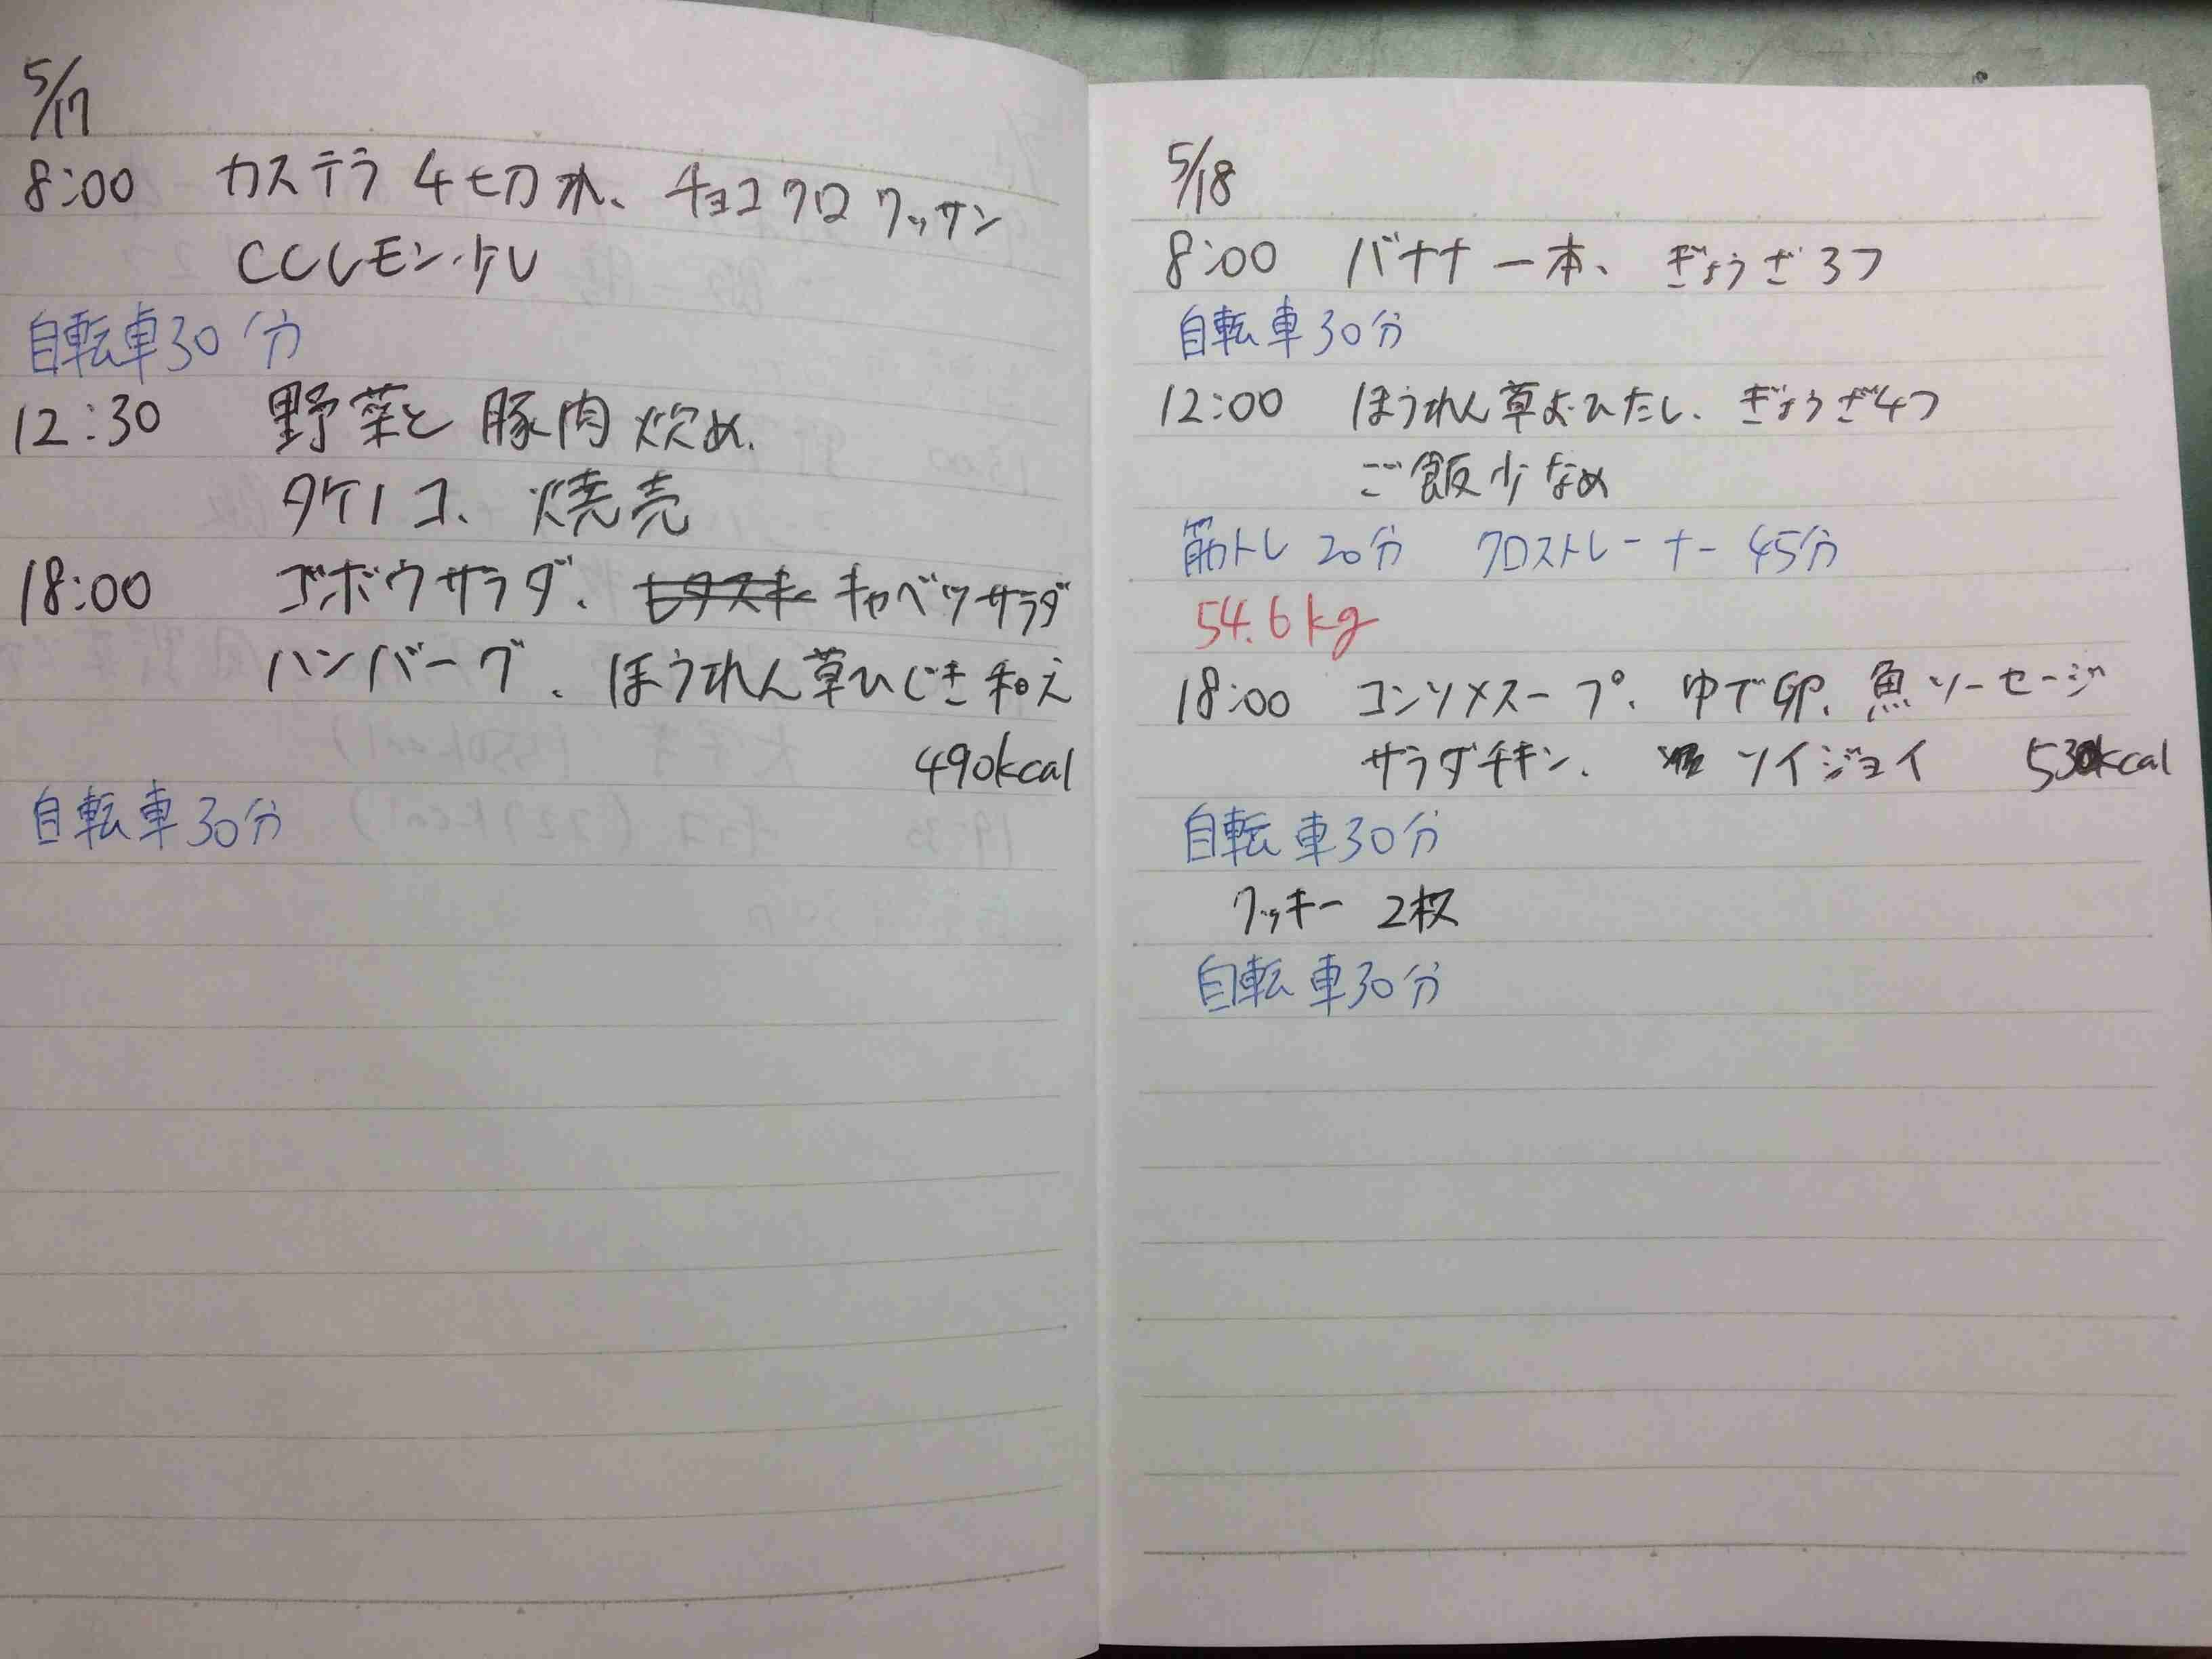 5/17
8:00 カステラ 4切れ、チョコクロワッサン
CCレモン少し
自転車30分
12:30 野菜と豚肉炒め、
タケノコ、焼売
18:00 ゴボウサラダ、キャベツサラダ
ハンバーグ、ほうれん草ひじき和え
490kcal
自転車30分
5/18
8:00 バナナ一本、ぎょうざ3つ
自転車30分
12:00 ほうれん草おひたし、ぎょうざ4つ
ご飯少なめ
筋トレ 20分 クロストレーナー 45分
54.6kg
18:00 コンソメスープ、ゆで卵、魚ソーセージ
サラダチキン、ソイジョイ 530kcal
自転車30分
クッキー 2枚
自転車30分